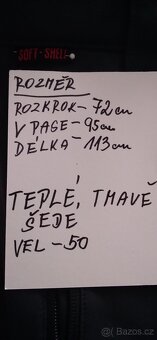 SOFT-SHELL
ROZMĚR
ROZKROK-72cm
V PASE-95cm
DÉLKA-113cm
TEPLÉ, TMAVĚ
ŠEDE
VEL-50
© Bazoš.cz